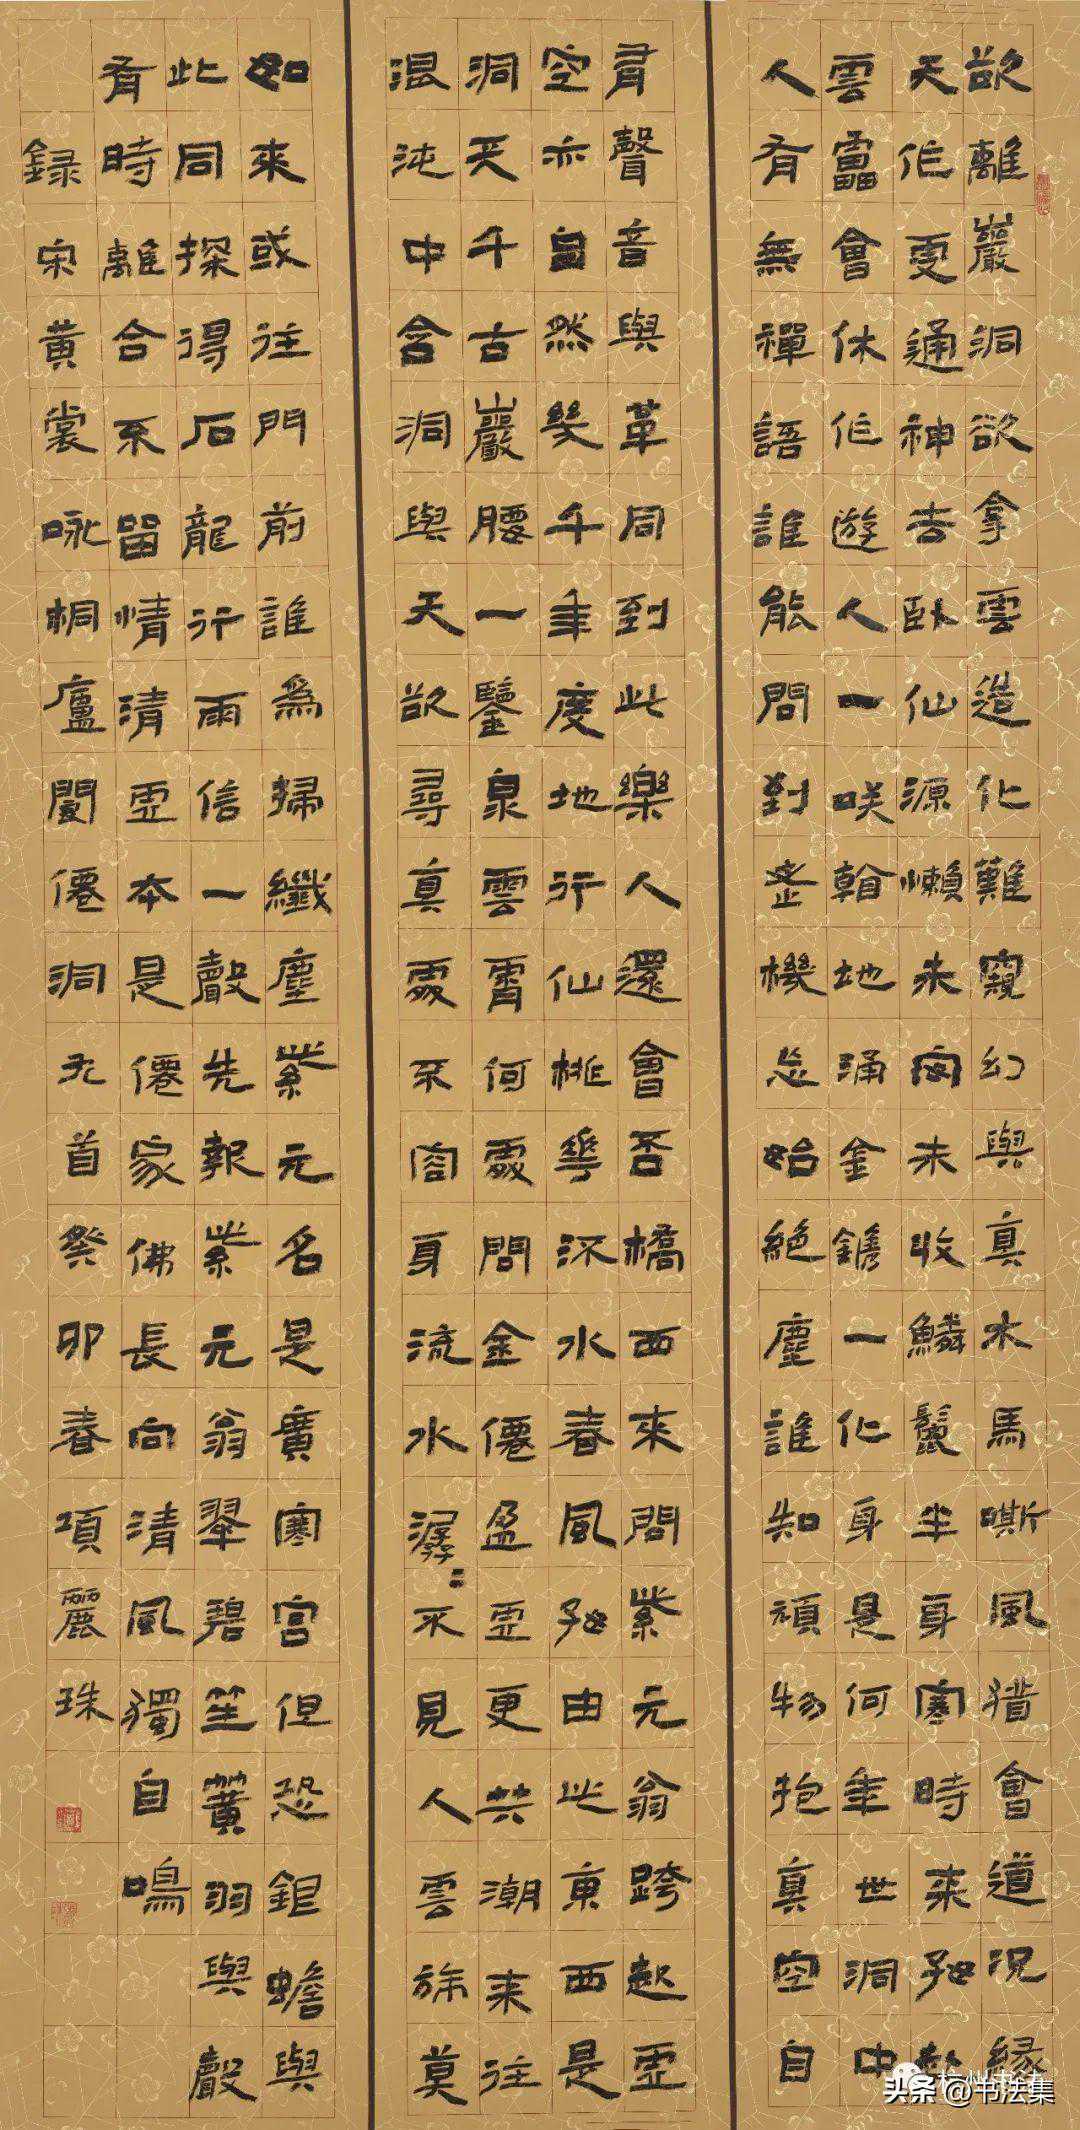 欲離巖洞欲拿雲造化難窺幻與真木馬嘶風猎會道況緣
天作更通神去臥仙源懶未未收鱗鬣半身寒時來
雲靁會休作遊人一咲地涌金鐫一化身是何年世洞中
人有無禪語誰能問到機忘始絕塵誰知頑物抱真空自
有聲音與革同到此樂人還會否橋西來問紫元翁跨起靈
空亦自然幾千年度地行仙桃花流水春風由此東西是
洞天千古巖腰一鑿泉雲霄何處問金僊盈虛更共潮来往
混沌中含洞與天欲尋真處不容身流水潺〻不見人雲旆莫
如來或往門前誰為掃纖塵紫元名是廣寒宮但恐鉅蟾與
此同探得石龍行雨信一聲先報紫元翁翠碧笙簧羽與聲
有時離合不留情清虛本是僊家佛長向清風獨自鳴
錄宋黃裳咏桐廬閬僊洞九首癸卯春項麗珠
头条 @书法集